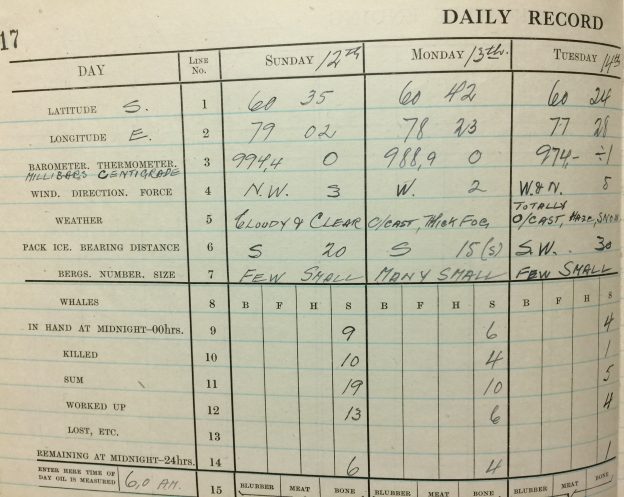 17
DAILY RECORD
DAY LINE No. SUNDAY 12th MONDAY 13th. TUESDAY 14th
LATITUDE S. 1 60 35 60 42 60 24
LONGITUDE E. 2 79 02 78 23 77 28
BAROMETER. THERMOMETER. MILLIBARS CENTIGRADE 3 994,4 0 988,9 0 974,- ÷1
WIND. DIRECTION. FORCE 4 N.W. 3 W. 2 W & N. 5
WEATHER 5 CLOUDY & CLEAR O/CAST, THICK FOG, TOTALLY O/CAST, HAZE, SNOW
PACK ICE. BEARING DISTANCE 6 S 20 S 15 (S) S.W. 30
BERGS. NUMBER, SIZE 7 FEW SMALL MANY SMALL FEW SMALL
WHALES 8 B F H S B F H S B F H S
IN HAND AT MIDNIGHT—00hrs. 9 9 6 4
KILLED 10 10 4 1
SUM 11 19 10 5
WORKED UP 12 13 6 4
LOST, ETC. 13
REMAINING AT MIDNIGHT—24hrs. 14 6 4 1
ENTER HERE TIME OF DAY OIL IS MEASURED 6,0 AM. 15 BLUBBER MEAT BONE BLUBBER MEAT BONE BLUBBER MEAT BONE